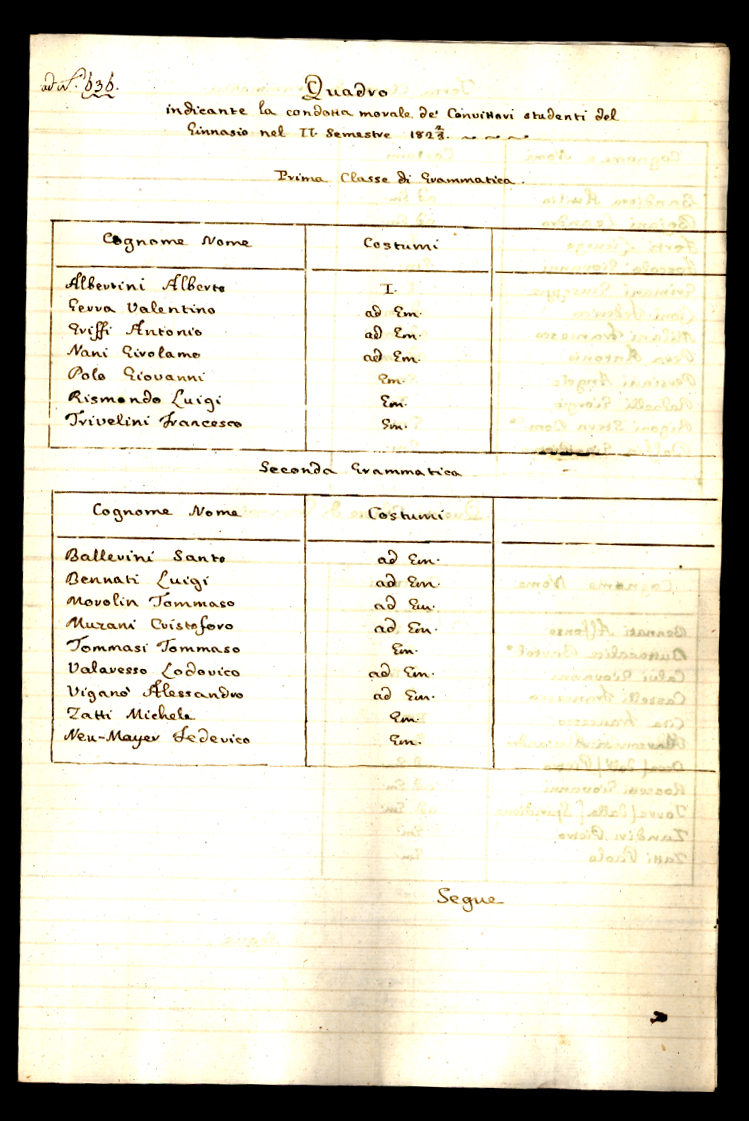 ad N.° 636.
Quadro
indicante la condotta morale de' Convittori studenti del
Ginnasio nel II. Semestre 182 2/3.
Prima Classe di Grammatica.
Cognome Nome Costumi
Albertini Alberto I.
Gerra Valentino ad Em.
Griffi Antonio ad Em.
Nani Girolamo ad Em.
Polo Giovanni Em.
Rismondo Luigi Em.
Trivelini Francesco Em.
Seconda Grammatica
Cognome Nome Costumi
Ballerini Santo ad Em.
Bennati Luigi ad Em.
Morolin Tommaso ad Em.
Murani Cristoforo ad Em.
Tommasi Tommaso Em.
Valaresso Lodovico ad Em.
Viganò Alessandro ad Em.
Zatti Michele Em.
Neu-Mayer Federico Em.
Segue